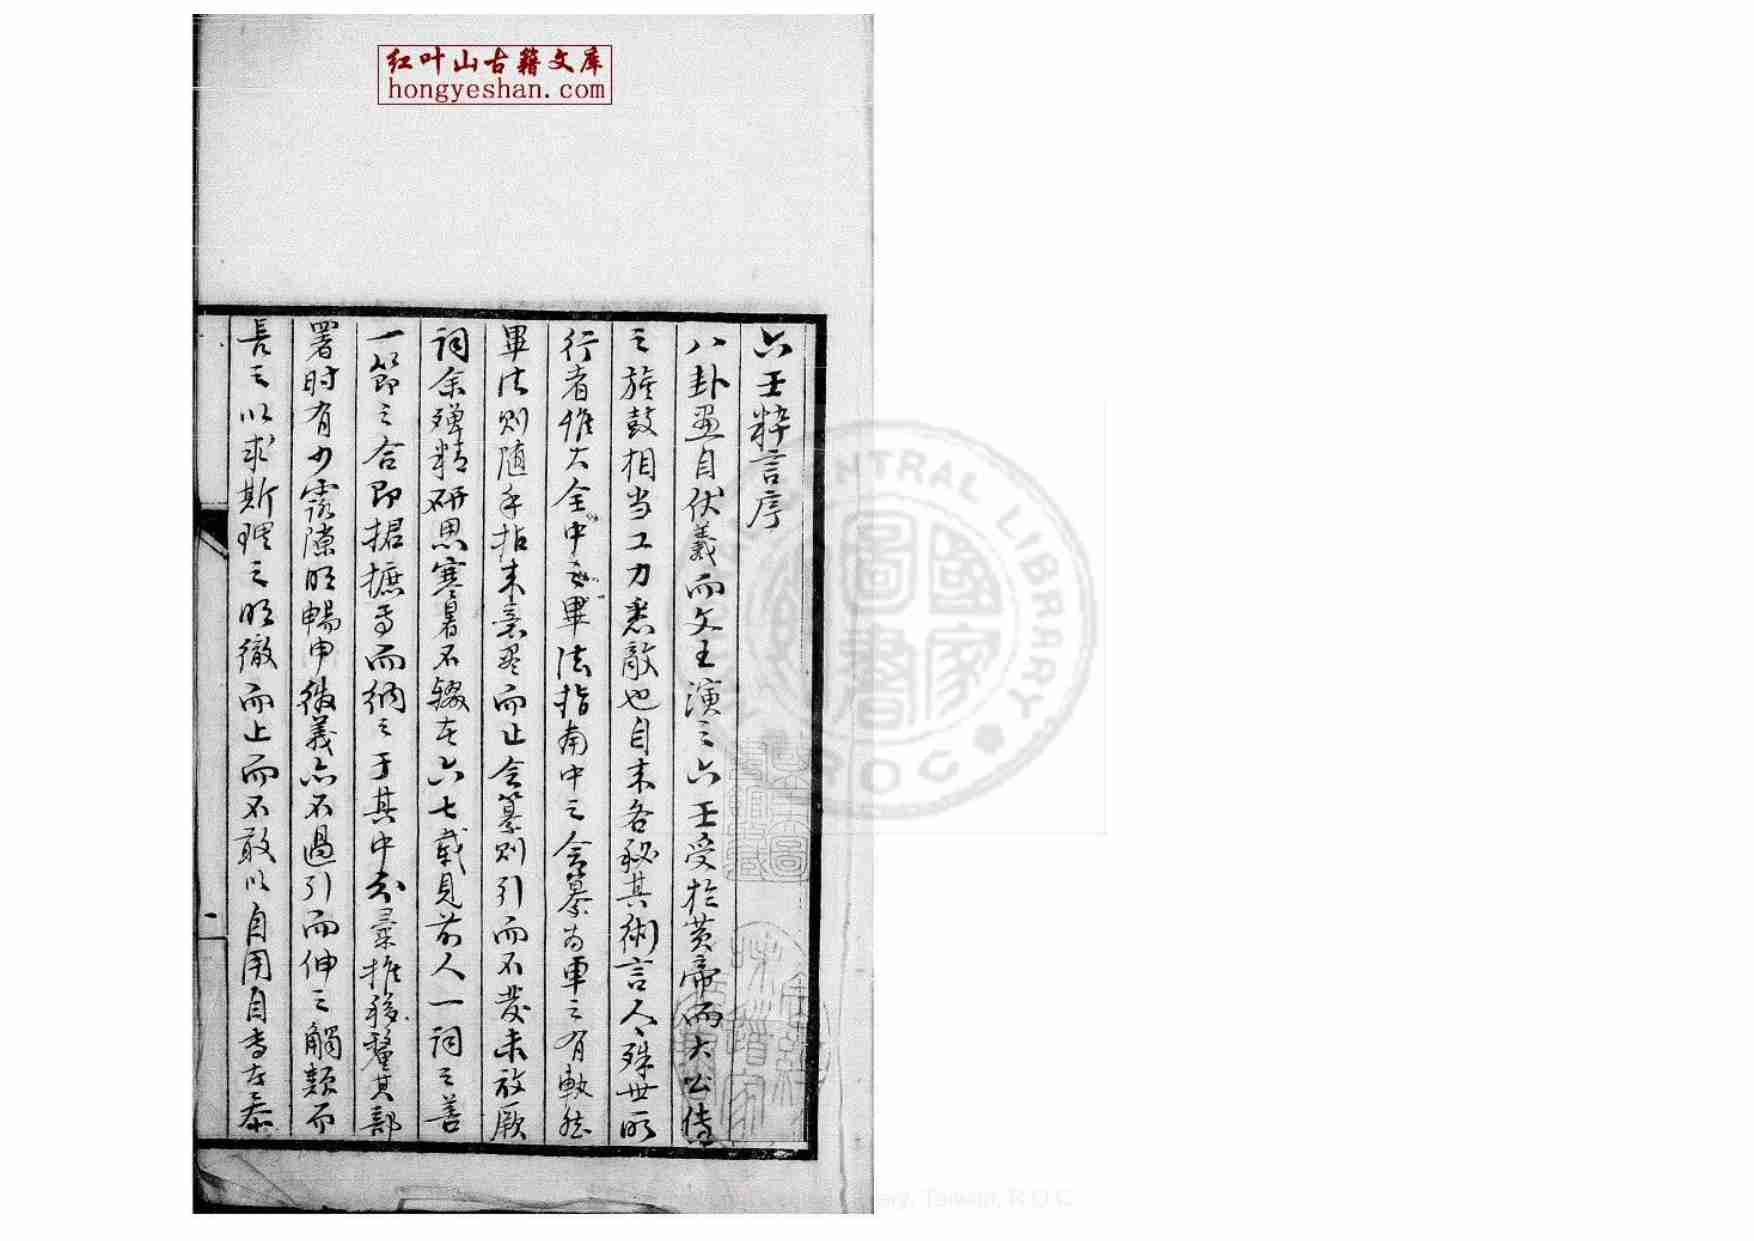 红叶山古籍文库
hongyeshan.com
六壬粹言序
八卦畫自伏羲而文王演之六壬受於黃帝而大公傳
之旗鼓相当工力悉敵也自来各秘其術言人人殊世所
行者惟大全中之畢法指南中之会纂为軍之有
畢法则随手拈来意尽而止会纂则引而不發未放厥
詞余殫精研思寒暑不輟在六七載見前人一詞之善
一節之合即捃摭焉而纳之于其中和最推移釐其部
署时有少露隙明暢申徵義亦不過引而伸之觸類而
長之以求斯理之明徹而止而不敢以自用自专
CENTRAL LIBRARY
ROC
國家圖書
Library, Taiwan, R.O.C